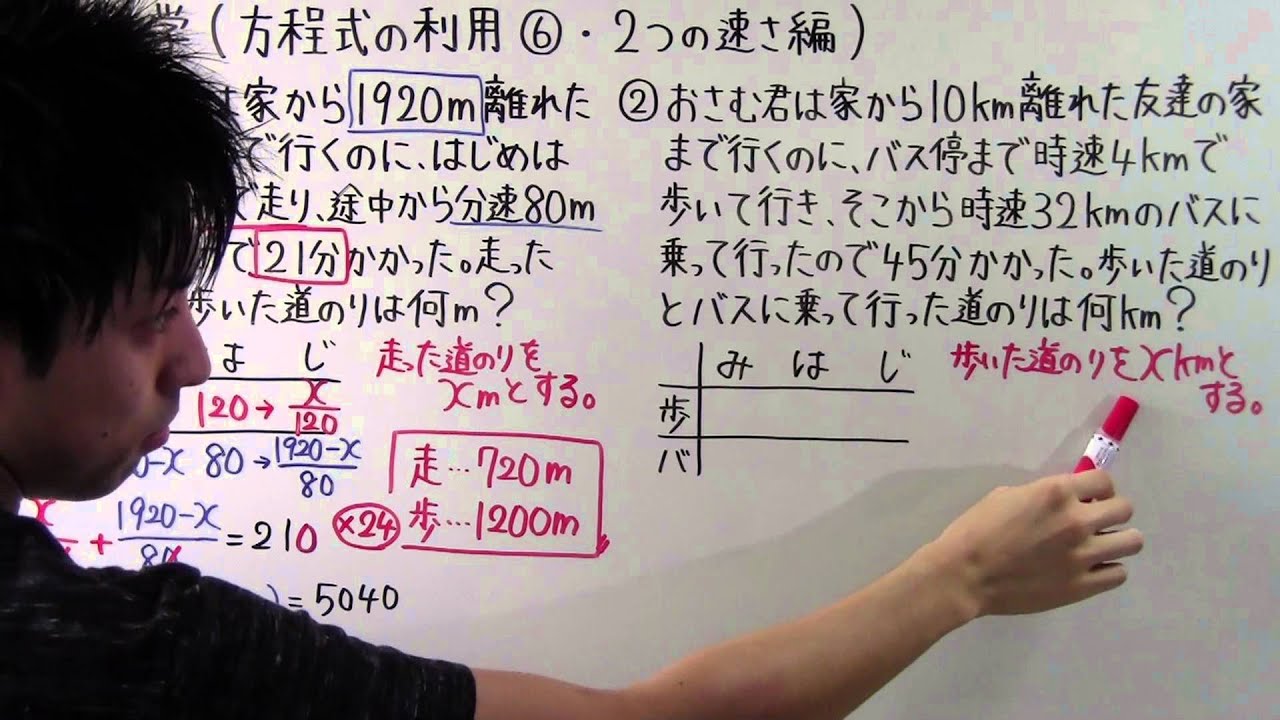 学(方程式の利用⑥・2つの速さ編)
は家から1920m離れた
で行くのに、はじめは
走り、途中から分速80m
で21分かかった。走った
歩いた道のりは何m?
は じ
120→x/120
-x 80→1920-x/80
走った道のりを
xmとする。
走…720m
歩…1200m
+1920-x/80=210 ×24
)=5040
②おさむ君は家から10km離れた友達の家
まで行くのに、バス停まで時速4kmで
歩いて行き、そこから時速32kmのバスに
乗って行ったので45分かかった。歩いた道のり
とバスに乗って行った道のりは何km?
み は じ
歩
バ
歩いた道のりをxkmと
する。